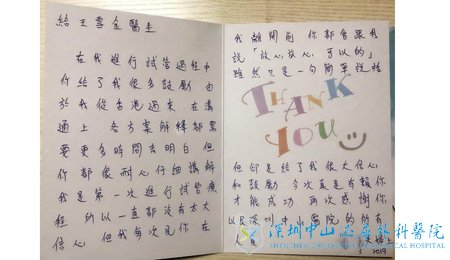 給王雪金醫生
在我進行試管過程中
你給了我很多鼓勵 由
於我從香港過來 在溝
通上 各方案解釋都需
要更多時間去明白 但
你都很耐心仔細講解
我是第一次進行試管療
程 所以一直都沒有太大
信心，但我每次見你 在
我離開前 你都會跟我
說「放心放心，可以的」
雖然只是一句簡單說話
THANK
YOU
但卻是給了我很大信心
和鼓勵 今次真是有賴你
才能成功 再次感謝你
以及深圳中山醫院的所有
人員
上
2019
深圳中山泌尿外科醫院